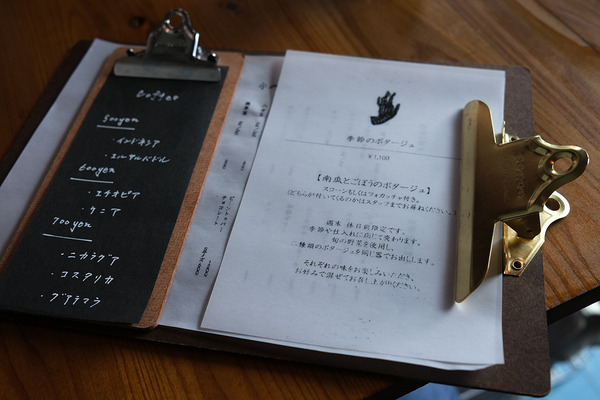 Coffee
500yen
・インドネシア
・エルサルバドル
600yen
・エチオピア
・ケニア
700yen
・ニカラグア
・コスタリカ
・グアテマラ
ピーナッツバター
チョコレート
季節のポタージュ
¥1,100
【南瓜とごぼうのポタージュ】
スコーンもしくはフォカッチャ付き。
(どちらが付いてくるのかはスタッフまでお尋ねください。)
週末 休日前限定です。
季節や仕入れに応じて変わります。
旬の野菜を使用し、
二種類のポタージュを同じ器でお出しします。
それぞれの味をお楽しみいただき、
お好みで混ぜてお召し上がりください。